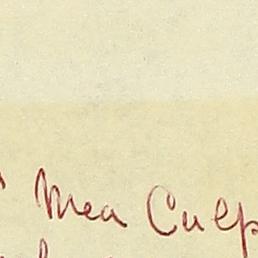 Mea Culp